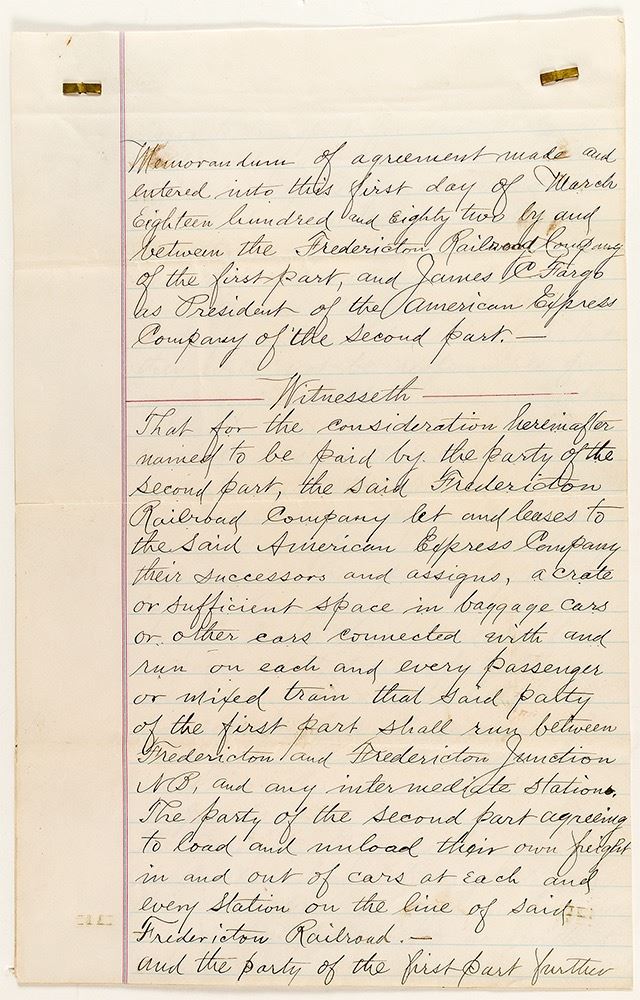 Memorandum of agreement made and
entered into this first day of March
Eighteen hundred and Eighty two by and
between the Fredericton Railroad Company
of the first part, and James C Fargo
as President of the American Express
Company of the second part. —
Witnesseth
That for the consideration hereinafter
named to be paid by the party of the
second part, the said Fredericton
Railroad Company let and leases to
the said American Express Company
their successors and assigns, a crate
or sufficient space in baggage cars
or other cars connected with and
run on each and every passenger
or mixed train that said party
of the first part shall run between
Fredericton and Fredericton Junction
N B, and any intermediate stations.
The party of the second part agreeing
to load and unload their own freight
in and out of cars at each and
every station on the line of said
Fredericton Railroad. —
and the party of the first part further